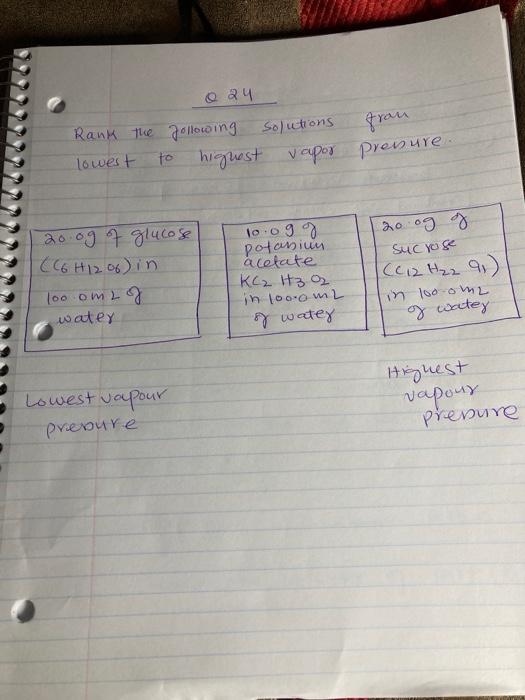 Q 24
Rank the following solutions from
lowest to highest vapor pressure.
20.0g of glucose
(C6H12O6) in
100.0mL of
water
10.0g of
potassium
acetate
KC2H3O2
in 100.0mL
of water
20.0g of
sucrose
(C12H22O11)
in 100.0mL
of water
Lowest vapour
pressure
Highest
vapour
pressure